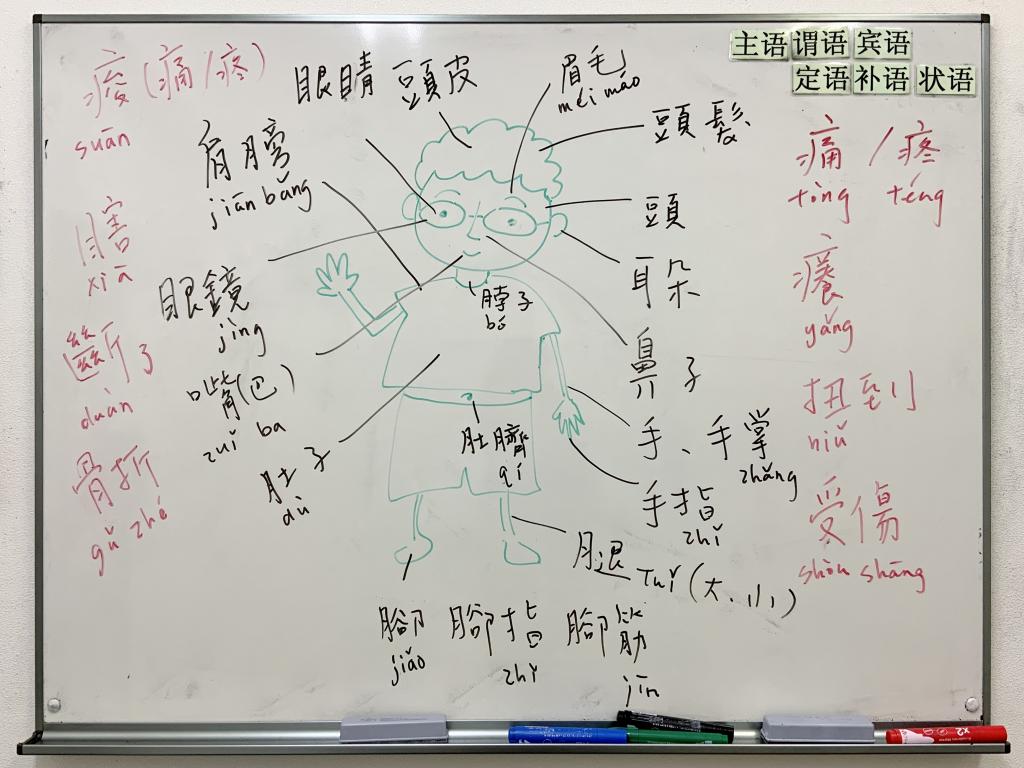 主语 谓语 宾语
定语 补语 状语
痠(痛/疼)
suān
瞎
xiā
斷了
duàn
骨折
gǔ zhé
眼睛
頭皮
眉毛
méi máo
肩膀
jiān bǎng
眼鏡
jìng
嘴(巴)
zuǐ ba
肚子
dù
脖子
bó
肚臍
qí
頭髮
頭
耳朵
鼻子
手、手掌
zhǎng
手指
zhǐ
腿 Tuǐ (大、小)
腳
jiǎo
腳指
zhǐ
腳筋
jīn
痛/疼
tòng téng
癢
yǎng
扭到
niǔ
受傷
shòu shāng
x2